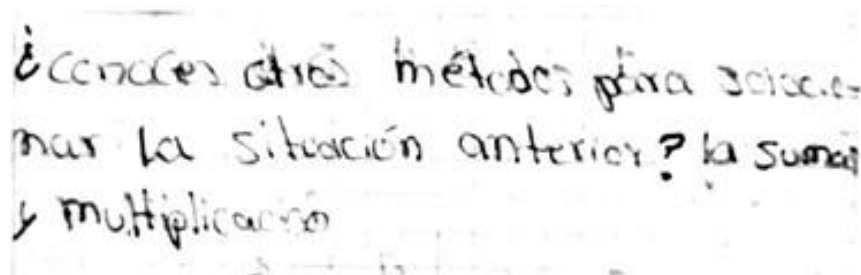 ¿Conoces otros métodos para solucio-
nar la situación anterior? la suma
y multiplicación